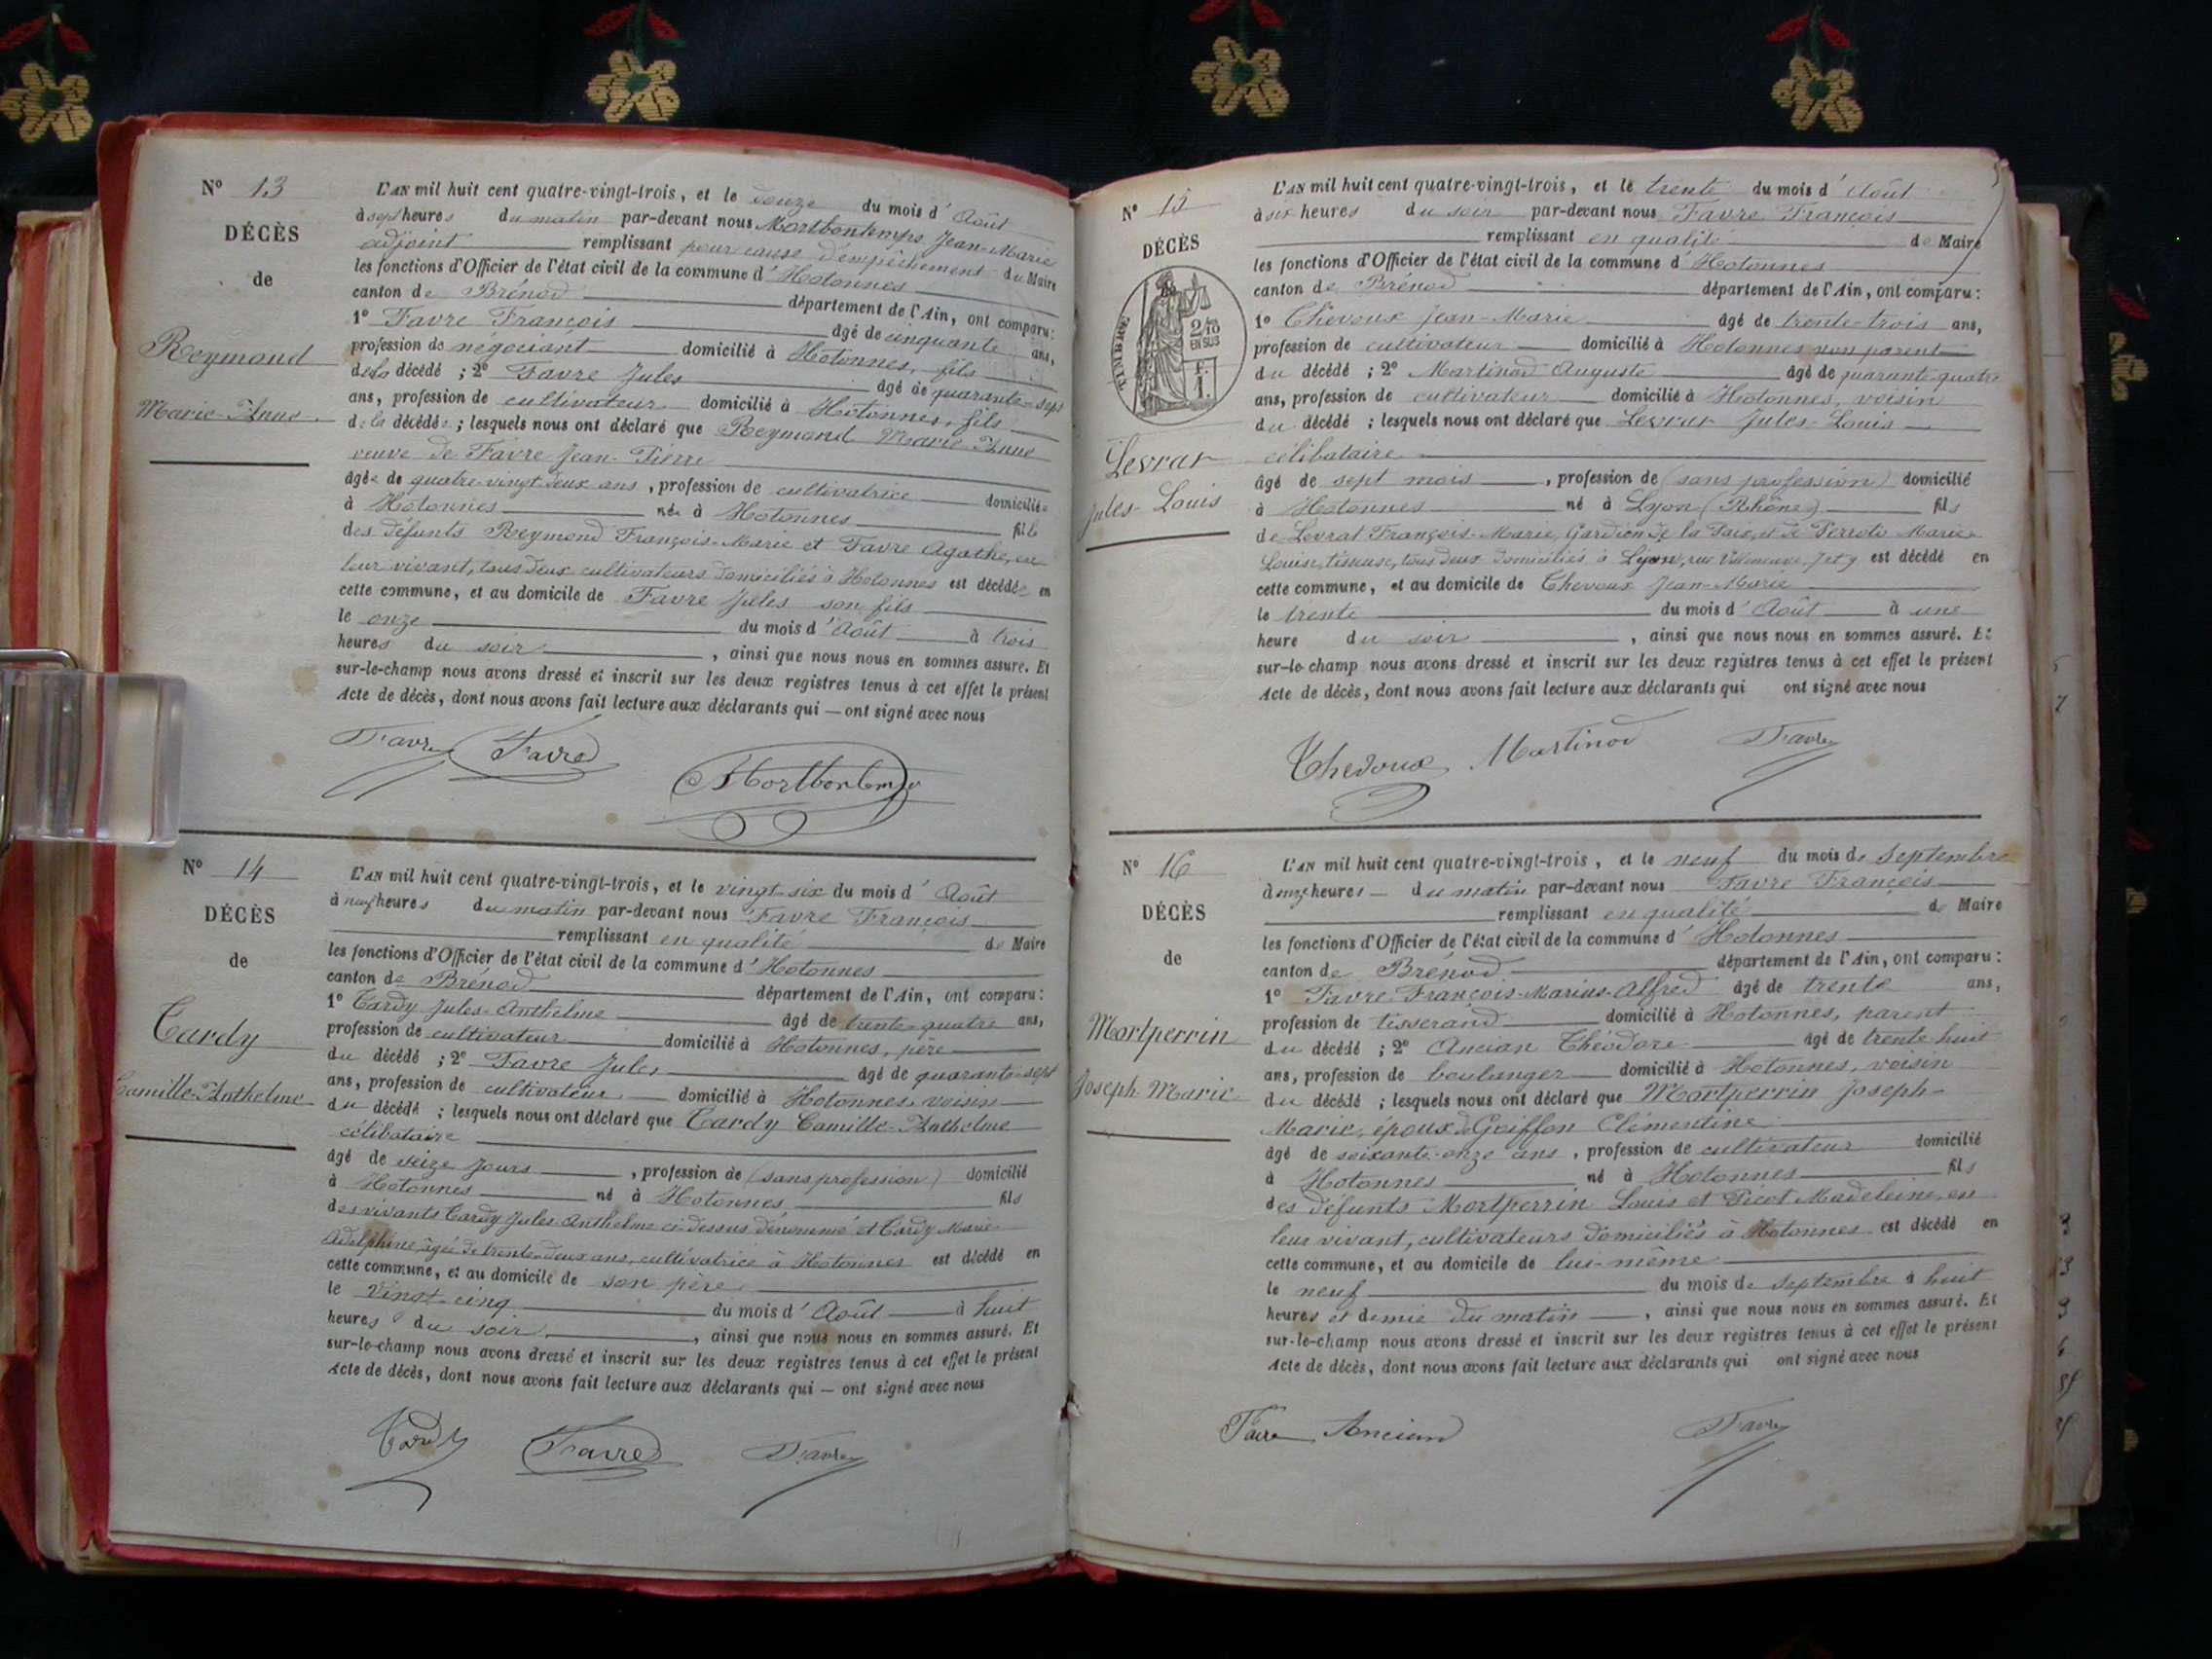 N° 13
DÉCÈS
de
Reymond
Marie-Anne
L'AN mil huit cent quatre-vingt-trois, et le douze du mois d'Août
à sept heures du matin par-devant nous Mortbontemps Jean-Marie
adjoint remplissant pour cause d'empêchement du Maire
les fonctions d'Officier de l'état civil de la commune d'Hotonnes
canton de Brénod département de l'Ain, ont comparu:
1° Favre François âgé de cinquante ans,
profession de négociant domicilié à Hotonnes, fils
de la décédé ; 2° Favre Jules âgé de quarante-sept
ans, profession de cultivateur domicilié à Hotonnes, fils
de la décédée ; lesquels nous ont déclaré que Reymond Marie-Anne
veuve de Favre Jean-Pierre
âgée de quatre-vingt-deux ans, profession de cultivatrice domiciliée
à Hotonnes née à Hotonnes fille
des défunts Reymond François-Marie et Favre Agathe, en
leur vivant, tous deux cultivateurs domiciliés à Hotonnes est décédée en
cette commune, et au domicile de Favre Jules son fils
le onze du mois d'Août à trois
heures du soir, ainsi que nous nous en sommes assuré. Et
sur-le-champ nous avons dressé et inscrit sur les deux registres tenus à cet effet le présent
Acte de décès, dont nous avons fait lecture aux déclarants qui — ont signé avec nous
Favre Favre
Mortbontemps
N° 14
DÉCÈS
de
Tardy
Camille-Anthelme
L'AN mil huit cent quatre-vingt-trois, et le vingt-six du mois d'Août
à neuf heures du matin par-devant nous Favre François
remplissant en qualité de Maire
les fonctions d'Officier de l'état civil de la commune d'Hotonnes
canton de Brénod département de l'Ain, ont comparu:
1° Tardy Jules-Anthelme âgé de trente-quatre ans,
profession de cultivateur domicilié à Hotonnes, père
du décédé ; 2° Favre Jules âgé de quarante-sept
ans, profession de cultivateur domicilié à Hotonnes, voisin
du décédé ; lesquels nous ont déclaré que Tardy Camille-Anthelme
célibataire
âgé de seize jours, profession de (sans profession) domicilié
à Hotonnes né à Hotonnes fils
des vivants Tardy Jules-Anthelme ci-dessus dénommé et Tardy Marie-
Adelphine, âgée de trente-deux ans, cultivatrice à Hotonnes est décédé en
cette commune, et au domicile de son père
le vingt-cinq du mois d'Août à huit
heures du soir, ainsi que nous nous en sommes assuré. Et
sur-le-champ nous avons dressé et inscrit sur les deux registres tenus à cet effet le présent
Acte de décès, dont nous avons fait lecture aux déclarants qui — ont signé avec nous
Tardy Favre Favre
N° 15
DÉCÈS
TIMBRE
2/10
EN SUS
F.
1.
Levrat
Jules-Louis
L'AN mil huit cent quatre-vingt-trois, et le trente du mois d'Août
à six heures du soir par-devant nous Favre François
remplissant en qualité de Maire
les fonctions d'Officier de l'état civil de la commune d'Hotonnes
canton de Brénod département de l'Ain, ont comparu:
1° Chevoux Jean-Marie âgé de trente-trois ans,
profession de cultivateur domicilié à Hotonnes non parent
du décédé ; 2° Martinod Auguste âgé de quarante-quatre
ans, profession de cultivateur domicilié à Hotonnes, voisin
du décédé ; lesquels nous ont déclaré que Levrat Jules-Louis
célibataire
âgé de sept mois, profession de (sans profession) domicilié
à Hotonnes né à Lyon (Rhône) fils
de Levrat François-Marie, Gardien de la Paix, et de Perroto Marie-
Louise, tisseuse, tous deux domiciliés à Lyon, rue Villeneuve, est décédé en
cette commune, et au domicile de Chevoux Jean-Marie
le trente du mois d'Août à une
heure du soir, ainsi que nous nous en sommes assuré. Et
sur-le-champ nous avons dressé et inscrit sur les deux registres tenus à cet effet le présent
Acte de décès, dont nous avons fait lecture aux déclarants qui ont signé avec nous
Martinod Favre
N° 16
DÉCÈS
de
Mortperrin
Joseph-Marie
L'AN mil huit cent quatre-vingt-trois, et le neuf du mois de Septembre
à onze heures — du matin par-devant nous Favre François
remplissant en qualité de Maire
les fonctions d'Officier de l'état civil de la commune d'Hotonnes
canton de Brénod département de l'Ain, ont comparu:
1° Favre François-Marius-Alfred âgé de trente ans,
profession de tisserand domicilié à Hotonnes, parent
du décédé ; 2° Ancian Théodore âgé de trente-huit
ans, profession de boulanger domicilié à Hotonnes, voisin
du décédé ; lesquels nous ont déclaré que Mortperrin Joseph-
Marie, époux de Goiffon Clémentine
âgé de soixante-onze ans, profession de cultivateur domicilié
à Hotonnes né à Hotonnes fils
des défunts Mortperrin Louis et Picot Madeleine, en
leur vivant, cultivateurs domiciliés à Hotonnes est décédé en
cette commune, et au domicile de lui-même
le neuf du mois de Septembre à huit
heures et demie du matin, ainsi que nous nous en sommes assuré. Et
sur-le-champ nous avons dressé et inscrit sur les deux registres tenus à cet effet le présent
Acte de décès, dont nous avons fait lecture aux déclarants qui ont signé avec nous
Favre Ancian Favre